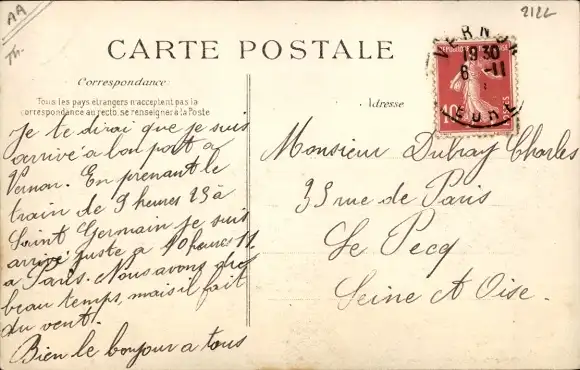 AA
Th.
2122
CARTE POSTALE
VERNON
19 30
6 - 11
EURE
10
Correspondance
Tous les pays étrangers n'acceptent pas la
correspondance au recto, se renseigner à la Poste
Adresse
Je te dirai que je suis
arrivé a bon port a
Vernon. En prenant le
train de 9 heures 23 à
Saint Germain je suis
arrivé juste a 10 heures 11
a Paris. Nous avons
beau temps, mais il fait
du vent.
Bien le bonjour a tous
Monsieur Dubray Charles
35 rue de Paris
Le Pecq
Seine et Oise.